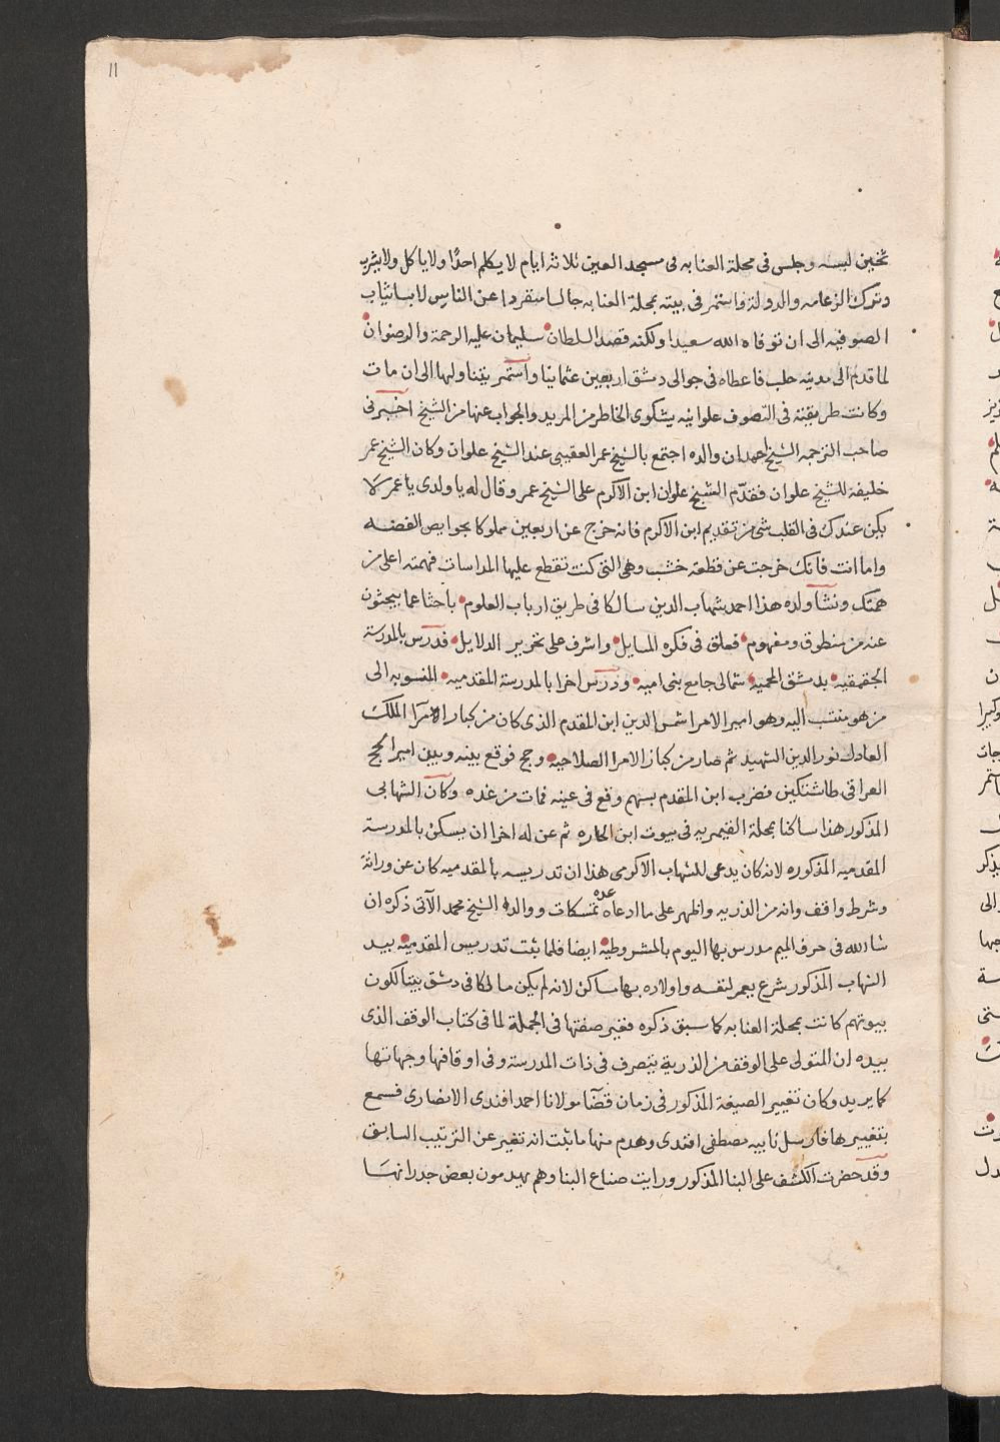 11
تخين لبسه وجلس في محلة العنابه في مسجد العين ثلاثة ايام لا يكلم احدًا ولا ياكل ولا يشرب
وترك الزعامه والدولة واستمر في بيته بمحلة العنابه جالسا منفردا عن الناس لابسا ثياب
الصوفيه الى ان توفاه الله سعيدا ولكنه قصد السلطان سليمان عليه الرحمة والرضوان
لما قدم الى مدينه حلب فاعطاه في جوالى دمشق اربعين عثمانيا واستمر يتناولها الى ان مات
وكانت طريقته في التصوف علوانيه يشكوى الخاطر من المريد والجواب عنها من الشيخ اخبرنى
صاحب الترجمه الشيخ احمد ان والده اجتمع بالشيخ عمر العقيبى عند الشيخ علوان وكان الشيخ عمر
خليفة للشيخ علوان فقدّم الشيخ علوان ابن الاكرم على الشيخ عمر وقال له يا ولدى يا عمر لا
يكن عندك في القلب شئ من تقديم ابن الاكرم فانه خرج عن اربعين مملوكا بحوايص الفضه
واما انت فانك خرجت عن قطعة خشب وهى التى كنت تقطع عليها المداسات فهمته اعلى من
همتك ونشأ ولده هذا احمد شهاب الدين سالكا في طريق ارباب العلوم باحثا عما يبحثون
عنه من منطوق ومفهوم فعلق في فكره المسايل واشرف على تحرير الدلايل فدرس بالمدرسة
الجقمقيه بدمشق المحميه شمالى جامع بنى اميه ودرس اخرا بالمدرسة المقدميه المنسوبه الى
من هو منتسب اليه وهو امير الامرا شمس الدين ابن المقدم الذى كان من كبار الامرآ الملك
العادل نور الدين الشهيد ثم صار من كبار الامرا الصلاحيه وحج فوقع بينه وبين امير الحج
العراقى طاشتكين فضرب ابن المقدم بسهم وقع في عينه فمات من غده وكان الشهابى
المذكور هذا ساكنا بمحلة القيمريه في بيوت ابن الحاره ثم عن له اخرا ان يسكن بالمدرسة
المقدميه المذكوره لانه كان يدعى للشهاب الاكرمى هذا ان تدريسه بالمقدميه كان عن وراثة
وشرط واقف وانه من الذريه واظهر على ما ادعاه عده تمسكات ووالده الشيخ محمد الآتى ذكره ان
شاء الله في حرف الميم مدرس بها اليوم بالمشروطيه ايضا فلما ثبت تدريس المقدميه بيد
الشهاب المذكور شرع يعمر لنفسه واولاده بها مساكن لانه لم يكن مالكا في دمشق بيتا لكون
بيوتهم كانت بمحلة العنابه كما سبق ذكره فغير صفتها في الجملة لما في كتاب الوقف الذى
بيده ان المتولى على الوقف من الذرية يتصرف في ذات المدرسة وفى اوقافها وجهاتها
كما يريد وكان تغيير الصيغة المذكور في زمان قضآ مولانا احمد افندى الانصارى فسمع
بتغييرها فارسل نايبه مصطفى افندى وهدم منها ما ثبت انه تغير عن الترتيب السابق
وقد حضرت الكشف على البنا المذكور ورايت صناع البنا وهم يهدمون بعض جدرانها